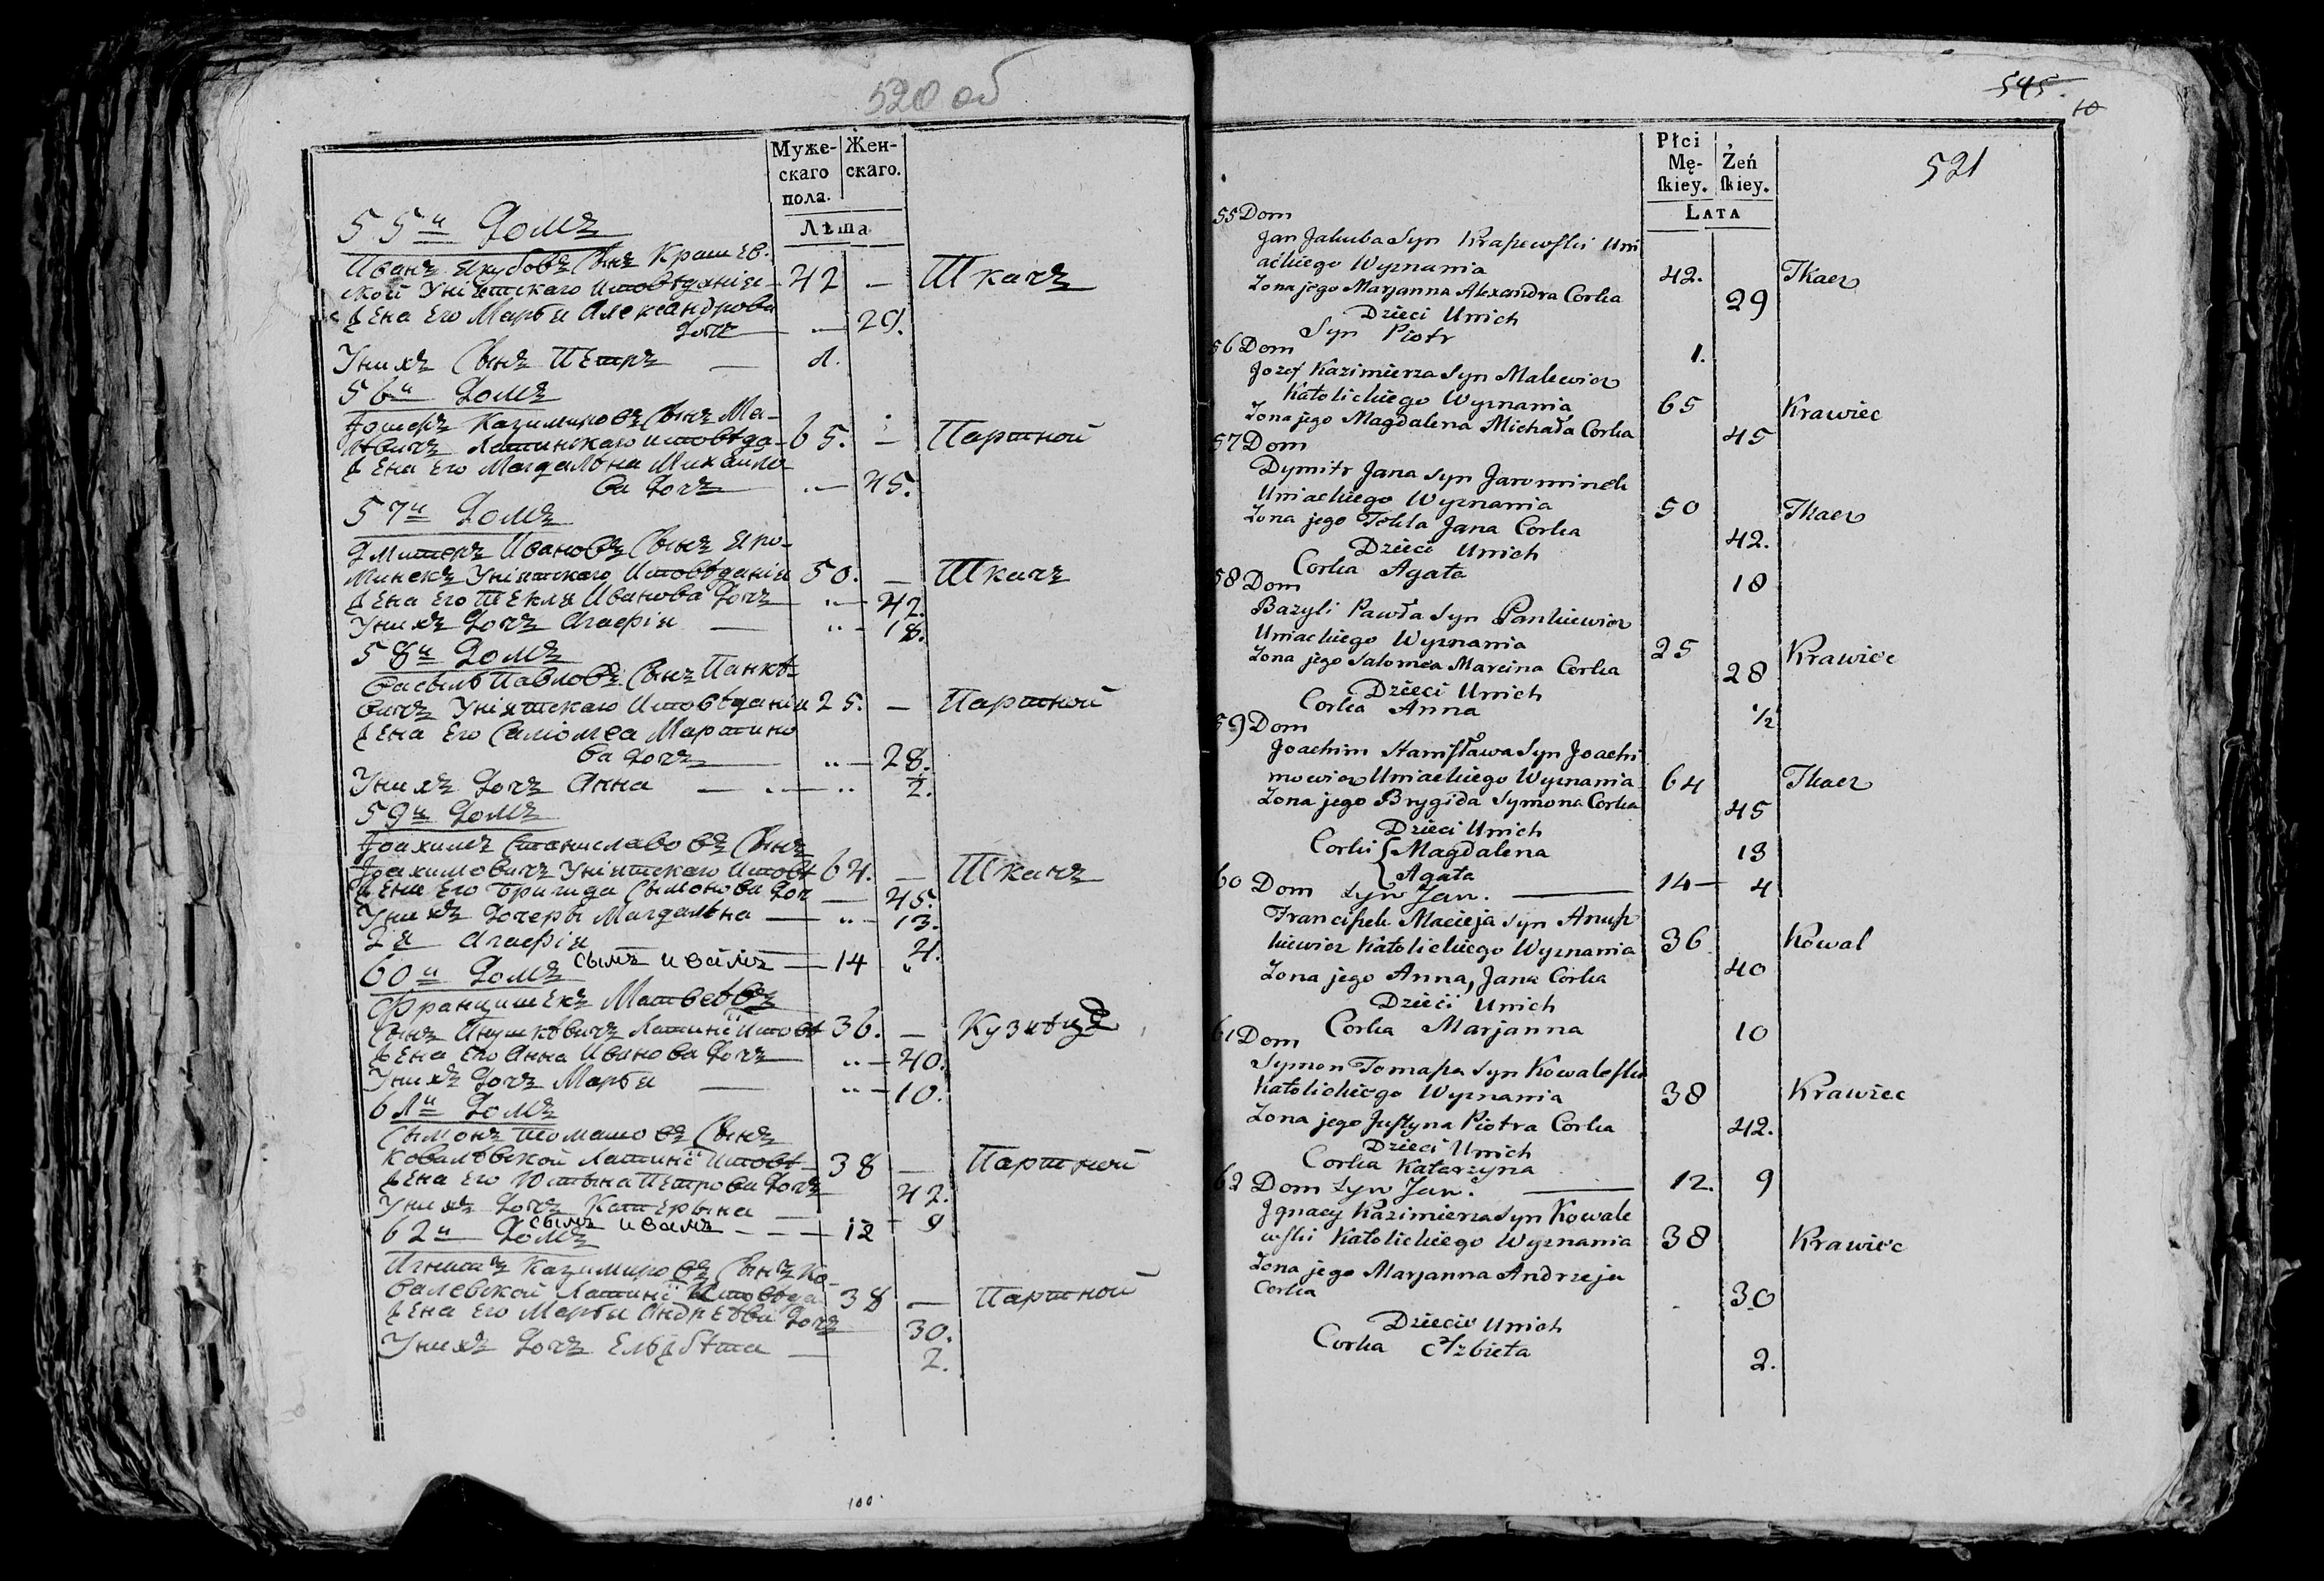 520 об
Муже-
скаго
пола.
Жен-
скаго.
Лѣта
55й Домъ
Иванъ Якубовъ Сынъ Крашев-
ской Уніятскаго Исповѣданія — 42 — Ткачъ
Жена Его Марья Александрова
Дочь — 29.
У нихъ Сынъ Петръ — 1.
56й Домъ
Іошефъ Казимировъ Сынъ Ма-
левичъ Латинскаго исповѣда- 65. — Партной
Жена Его Магдальна Михайло-
ва Дочь — 45.
57й Домъ
Дмитеръ Ивановъ Сынъ Яро-
минекъ Уніятскаго Исповѣданія 50. — Ткачъ
Жена Его Текля Иванова Дочь — 42.
У нихъ Дочь Агаефія — 18.
58й Домъ
Василь Павловъ Сынъ Панкѣ-
вичъ Уніятскаго Исповѣданія 25. — Партной
Жена Его Саломеа Мартино
ва Дочь — 28.
У нихъ Дочь Анна — 1/2.
59й Домъ
Іоахимъ Станиславовъ Сынъ
Іоахимовичъ Уніятскаго Исповѣ 64. — Ткачъ
Жена Его Бригида Сымонова Доч — 45.
У нихъ Дочеры Магдальна — 13.
2я Агаефія 4.
сынъ иванъ — 14 "
60й Домъ
Францишекъ Матвеевъ
Сынъ Анушкѣвичъ Латинс Исповѣ 36. — Кузнѣцъ
Жена Его Анна Иванова Дочь — 40.
У нихъ Дочь Марья — 10.
61й Домъ
Сымонъ Томашовъ Сынъ
Ковалѣвской Латинс Исповѣ- 38 — Партной
Жена Его Юстына Петрова Дочь 42.
У нихъ Дочь Катерына — 9
сынъ иванъ — — — 12
62й Домъ
Игнатъ Казимировъ Сынъ Ко-
валевской Латинс Исповѣда 38 — Партной
Жена Его Марья Андрѣева Дочь 30.
У нихъ Дочь Ельжбѣта — 2.
100.
545.
10
521
Płci
Mę-
ſkiey.
Żeń
ſkiey.
LATA
55 Dom
Jan Jakuba Syn Kraszewſki Uni
ackiego Wyznania 42. Tkacz
Zona jego Marjanna Alexandra Corka 29
Dzieci Unich
Syn Piotr 1.
56 Dom
Jozef Kazimierza Syn Malewicz
Katolickiego Wyznania 65 Krawiec
Zona jego Magdalena Michała Corka 45
57 Dom
Dymitr Jana Syn Jarominek
Uniackiego Wyznania 50 Tkacz
Zona jego Tekla Jana Corka 42.
Dzieci Unich
Corka Agata 18
58 Dom
Bazyli Pawła Syn Pankiewicz
Uniackiego Wyznania 25 Krawiec
Zona jego Salomea Marcina Corka 28
Dzieci Unich
Corka Anna 1/2
59 Dom
Joachim Staniſława Syn Joachi
mowicz Uniackiego Wyznania 64 Tkacz
Zona jego Brygida Symona Corka 45
Dzieci Unich
Corki { Magdalena 13
Agata 4
Syn Jan. — 14 —
60 Dom
Franciſzek Macieja Syn Anuſz
kiewicz Katolickiego Wyznania 36 Kowal
Zona jego Anna, Jana Corka 40
Dzieci Unich
Corka Marjanna 10
61 Dom
Symon Tomaſza Syn Kowalefſki
Katolickiego Wyznania 38 Krawiec
Zona jego Juſtyna Piotra Corka 42.
Dzieci Unich
Corka Katarzyna 9
Syn Jan. — 12.
62 Dom
Jgnacy Kazimierza Syn Kowale
wſki Katolickiego Wyznania 38 Krawiec
Zona jego Marjanna Andrzeja
Corka 30
Dzieci Unich
Corka Elzbieta 2.